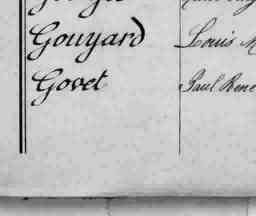 Gouyard Louis
Govet Paul Rene